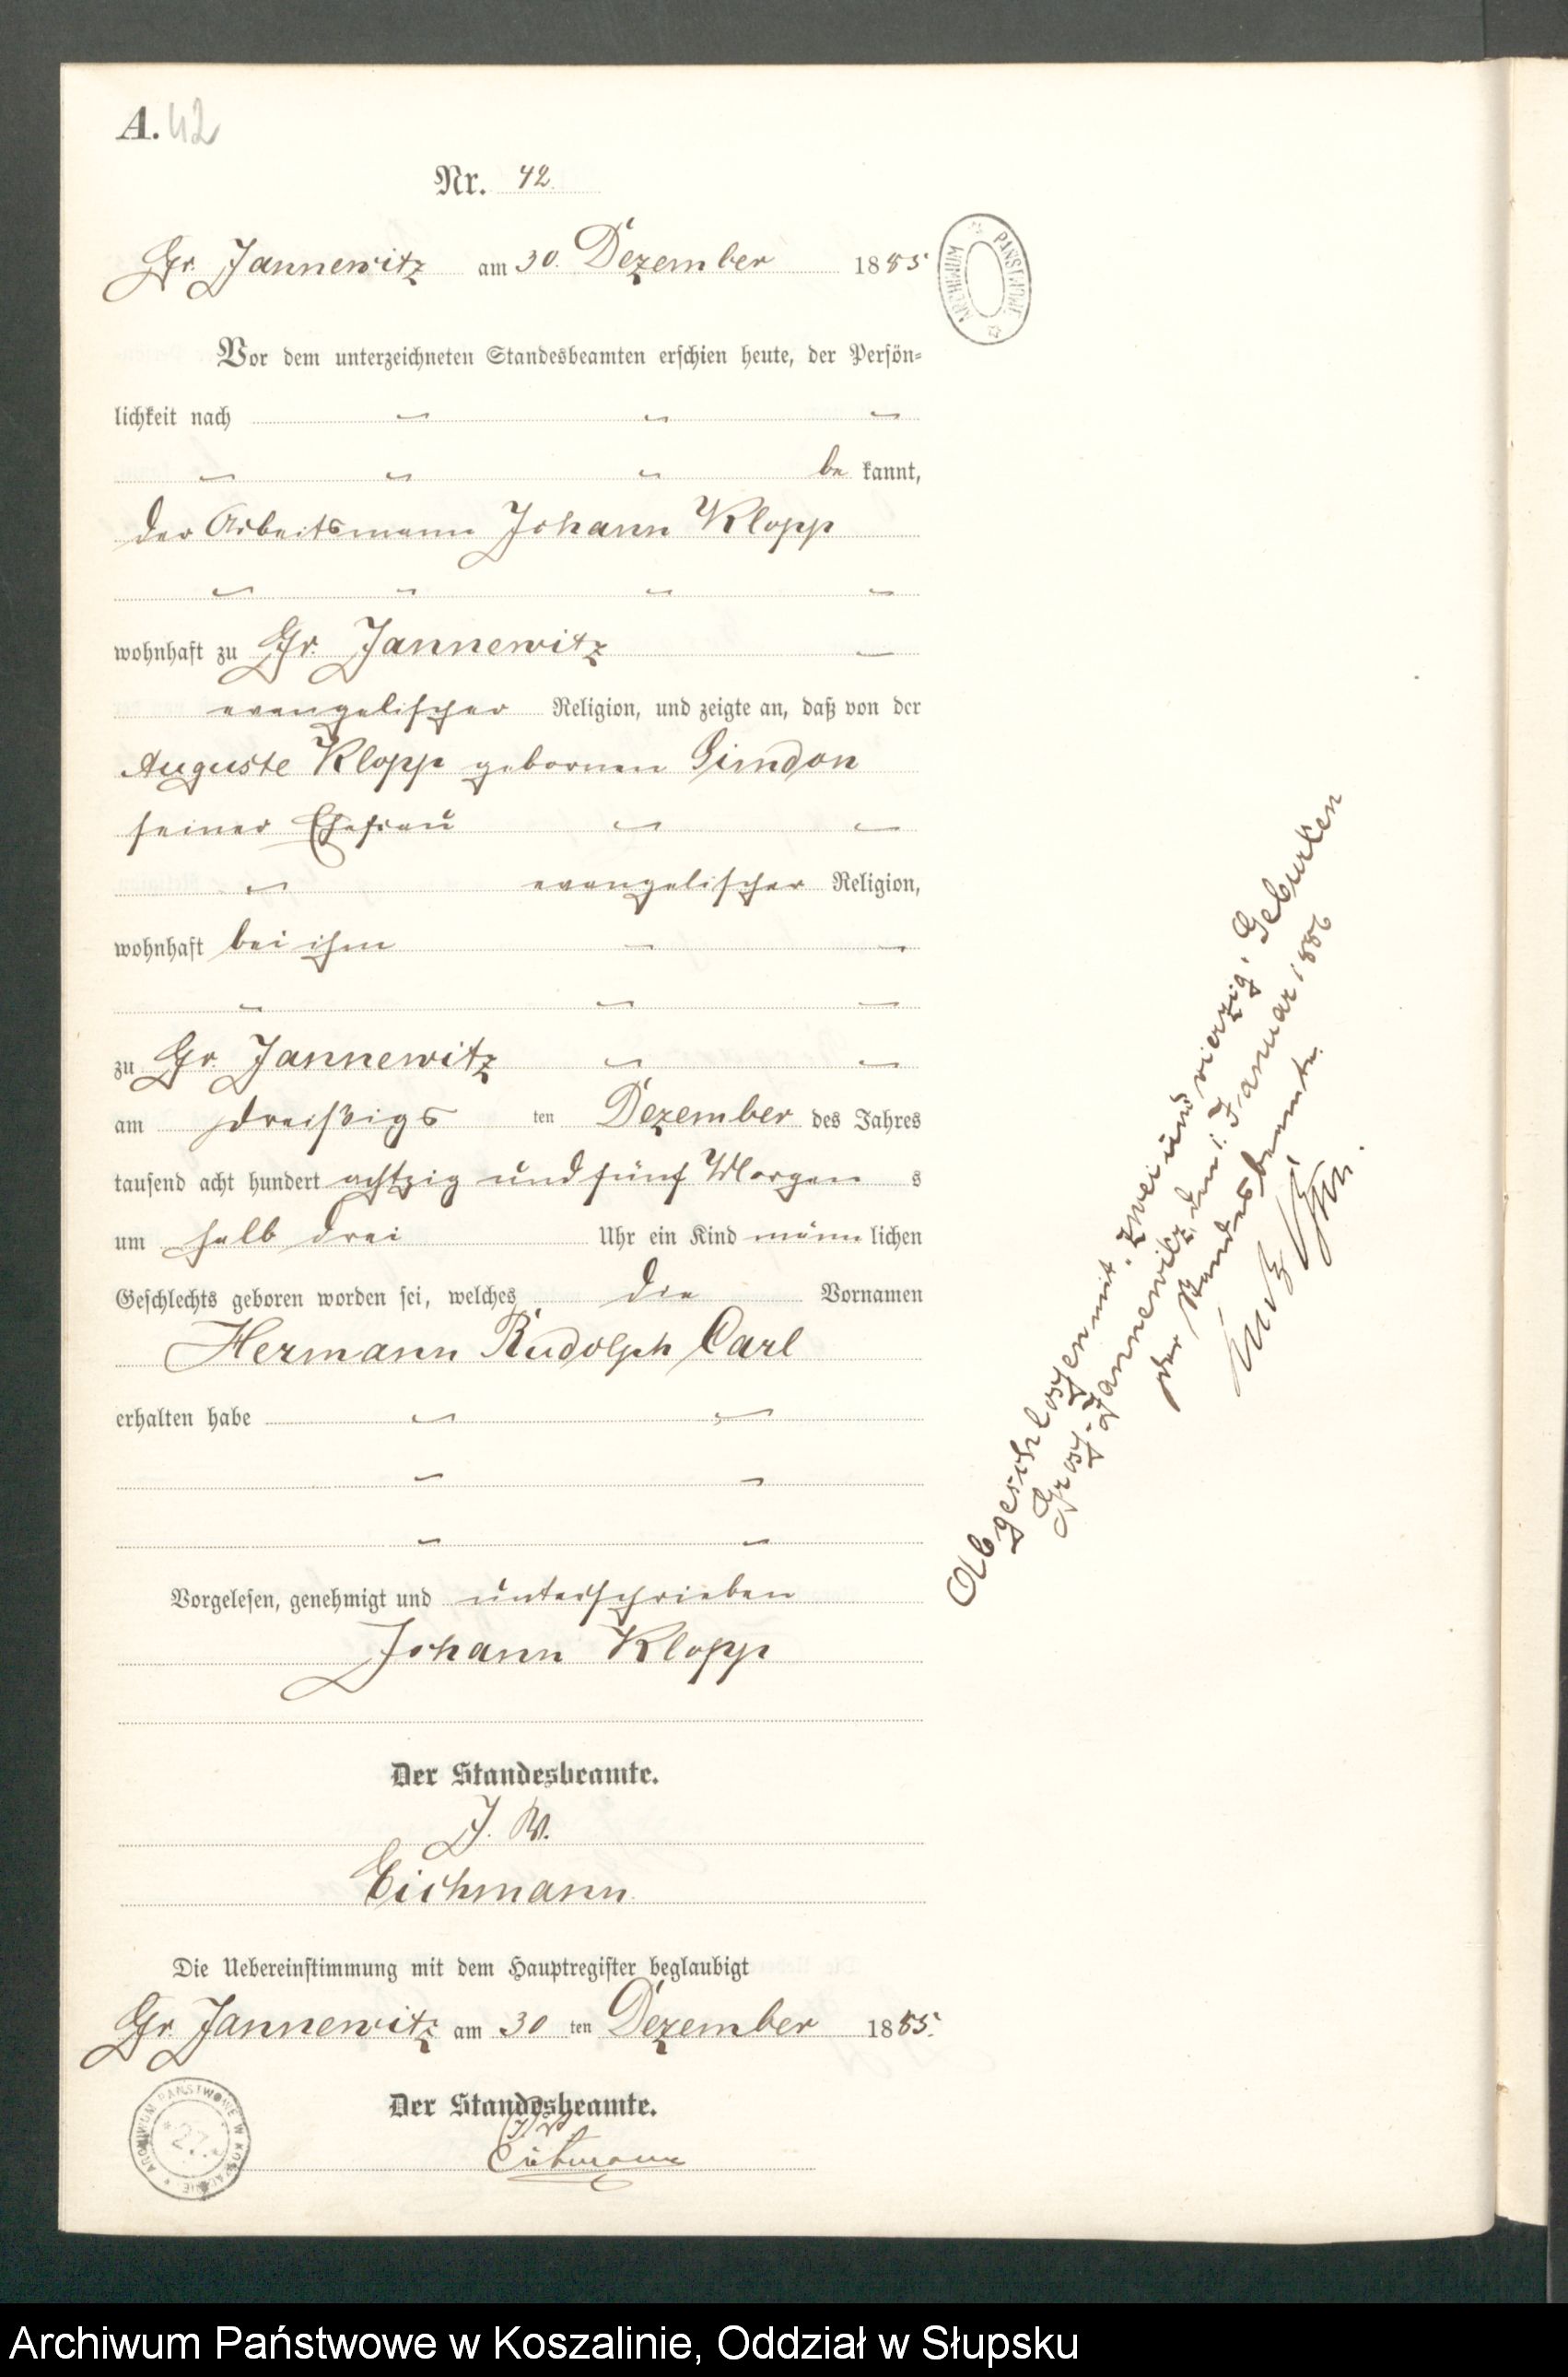 A. 42
Nr. 42.
Gr. Jannewitz am 30. Dezember 1885
Vor dem unterzeichneten Standesbeamten erschien heute, der Persön=
lichkeit nach
be kannt,
der Arbeitsmann Johann Klopp
wohnhaft zu Gr. Jannewitz
evangelischer Religion, und zeigte an, daß von der
Auguste Klopp gebornen Girndon
seiner Ehefrau
evangelischer Religion,
wohnhaft bei ihm
zu Gr. Jannewitz
am dreißigs ten Dezember des Jahres
tausend acht hundert achtzig und fünf Morgen s
um halb drei Uhr ein Kind männ lichen
Geschlechts geboren worden sei, welches die Vornamen
Hermann Rudolph Carl
erhalten habe
Vorgelesen, genehmigt und unterschrieben
Johann Klopp
Der Standesbeamte.
J. V.
Eichmann
Die Uebereinstimmung mit dem Hauptregister beglaubigt
Gr. Jannewitz am 30 ten Dezember 1885.
Der Standesbeamte.
Eichmann
Abgeschlossen mit zwei und vierzig Geburten
Gross Jannewitz, den 1. Januar 1886
Der Standesbeamte.
ARCHIWUM PAŃSTWOWE
ARCHIWUM PAŃSTWOWE W KOSZALINIE
27
Archiwum Państwowe w Koszalinie, Oddział w Słupsku